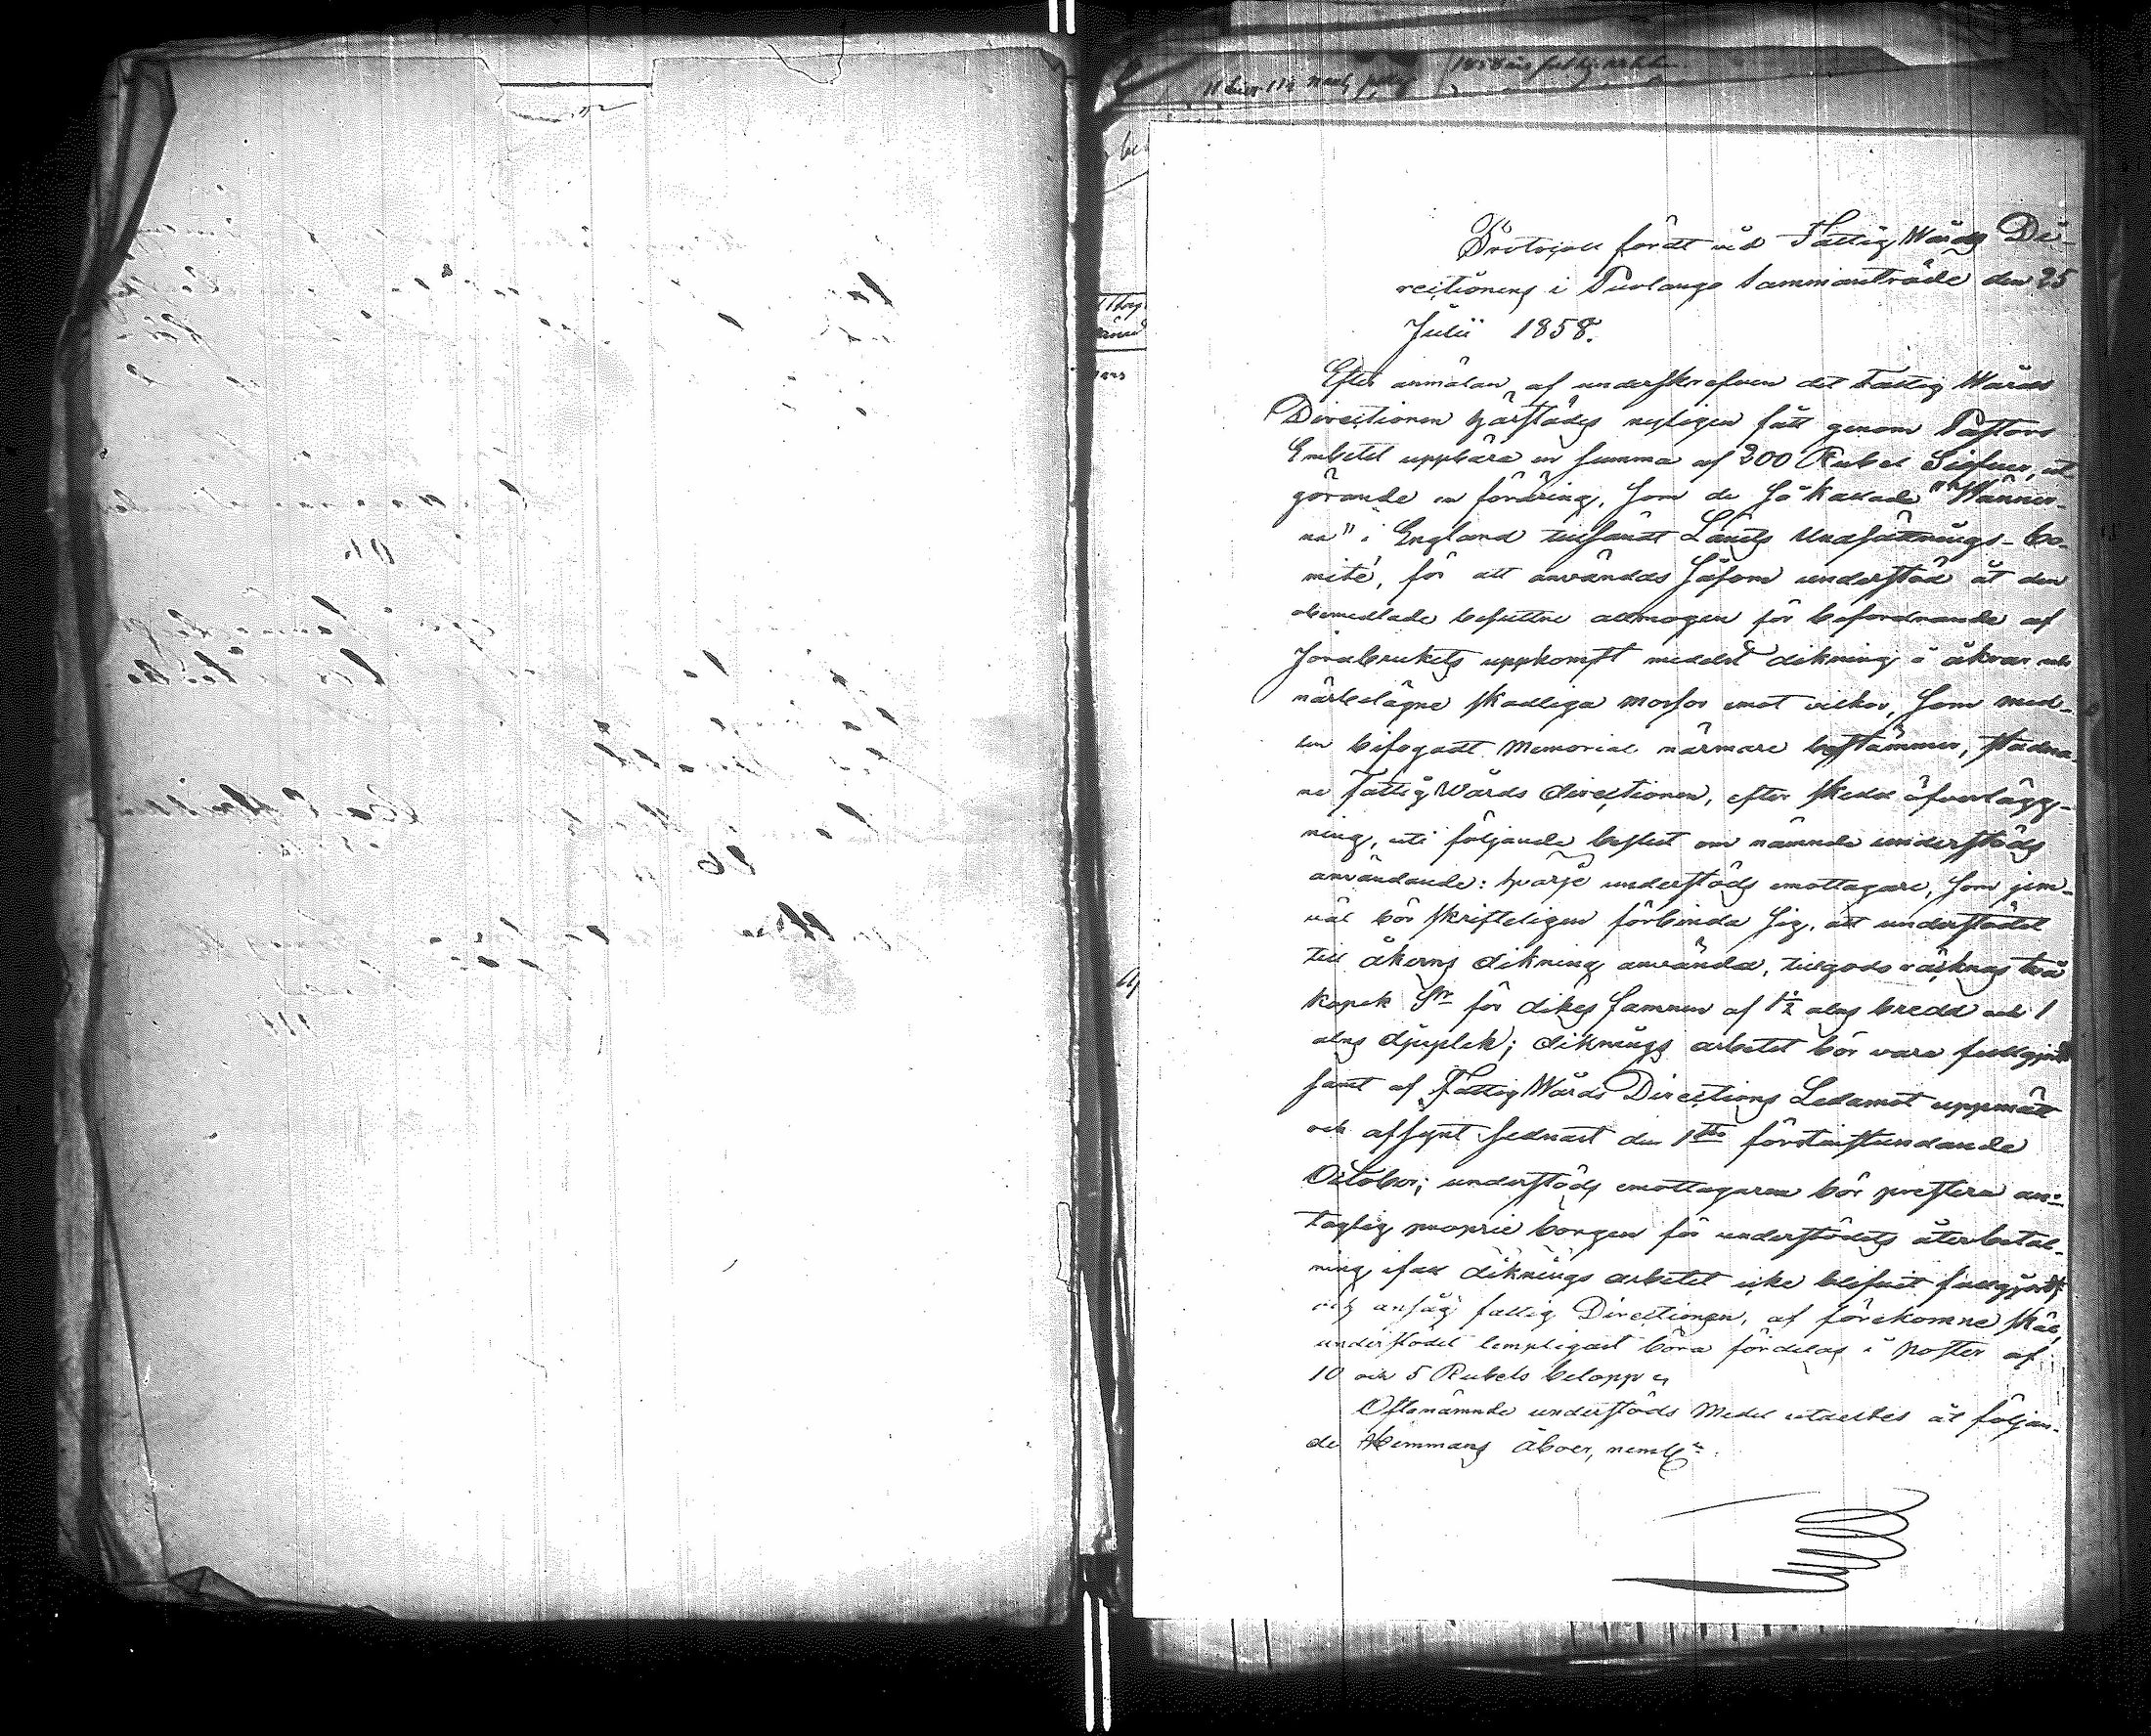 Protocoll fördt vid Fattig Wårds Di-
rectionens i Pudlango Sammanträde den 25
Julii 1858.
Efter anmälan af underskrefven det Fattig Wårds
Directionen härstädes nyligen fått genom Pastors
Embetet uppbära en summa af 200 Rubel Silfver, ut
görande en fordring, som de så kallade "Wänner-
na" i England tillsändt Länets Undsättnings-Co-
mité, för att användas såsom understöd åt den
obemedlade besuttne allmogen för befordrande af
Jordbrukets uppkomst medelst dikning i åkrar och
närbelägne skadliga mossor emot vilkor, som med-
len bifogadt Memorial närmare bestämmer, stadna-
ne Fattig Wårds directionen, efter skedd öfverlägg-
ning, uti följande beslut om nämnde understöds
användande: hvarje understöds emottagare, som jem-
väl bör skrifteligen förbinda sig, att understödet
till åkerns dikning använda, tillgodo räknas två
kopek Sr för dikes famnen af 1½ alns bredd och 1
alns djuplek; diknings arbetet bör vara fullgjordt
samt af Fattig Wårds Directions Ledamot uppmätt
och afsynt sednast den 1sta förstinstundande
October; understöds emottagaren bör prestera an-
taglig proprie borgen för understödets återbetal-
ning, ifall diknings arbetet icke blifvit fullgjordt,
och ansåg fattig Directionen, af förekomne skäl,
understödet lempligast böra fördelas i poster af
10 och 5 Rubels belopp
Oftanämnde understöds Medel utdeltes åt följan-
de Hemmans Åboer, neml: